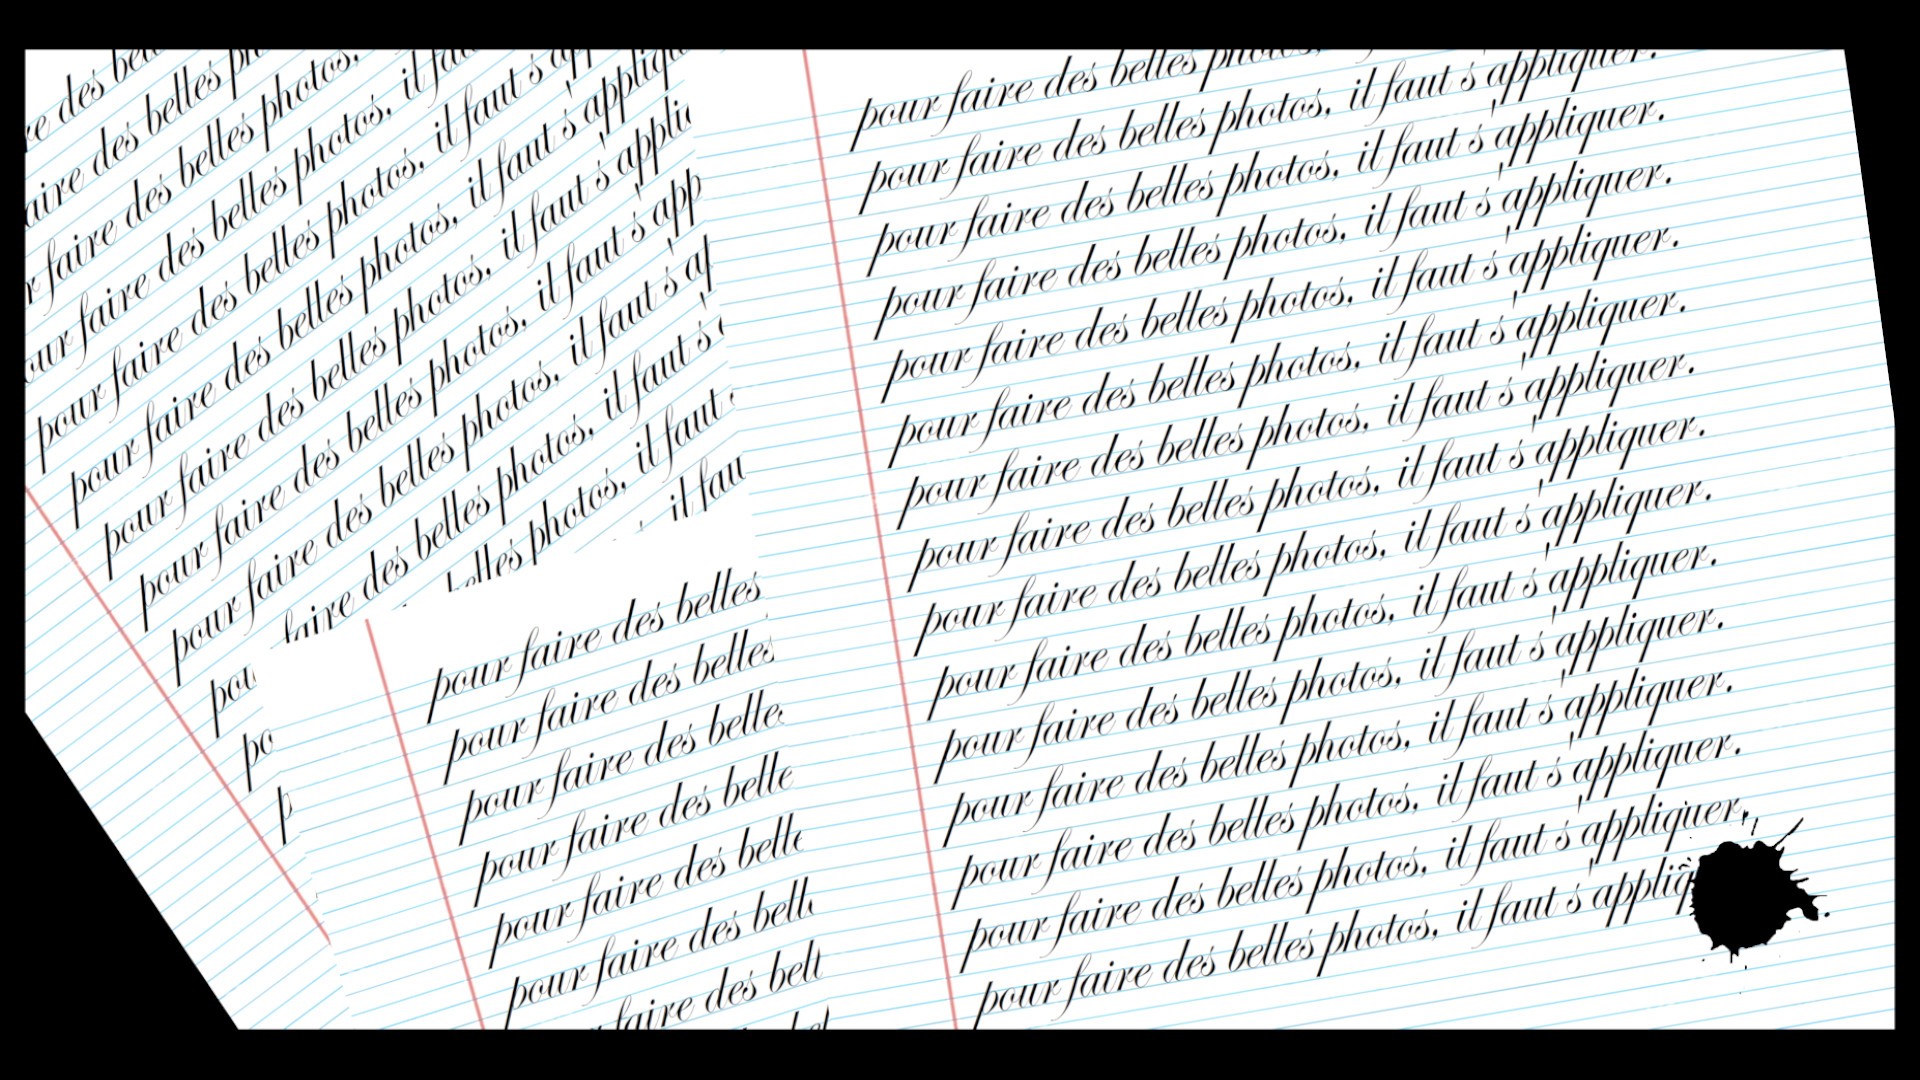 des
aire des belles
r faire des belles photos,
our faire des belles photos, il fa
pour faire des belles photos, il faut s'ap
pour faire des belles photos, il faut s'appliqu
pour faire des belles photos, il faut s'appli
pour faire des belles photos, il faut s'app
pour faire des belles photos, il faut s'a
pou faire des belles photos, il faut s'
po belles photos, il faut
p il fau
pour faire des belles
pour faire des belles
pour faire des belle
pour faire des belle
pour faire des belle
pour faire des bell
faire des bel
pour faire des belles photos,
pour faire des belles photos, il faut s'appliquer.
pour faire des belles photos, il faut s'appliquer.
pour faire des belles photos, il faut s'appliquer.
pour faire des belles photos, il faut s'appliquer.
pour faire des belles photos, il faut s'appliquer.
pour faire des belles photos, il faut s'appliquer.
pour faire des belles photos, il faut s'appliquer.
pour faire des belles photos, il faut s'appliquer.
pour faire des belles photos, il faut s'appliquer.
pour faire des belles photos, il faut s'appliquer.
pour faire des belles photos, il faut s'appliquer.
pour faire des belles photos, il faut s'appliquer.
pour faire des belles photos, il faut s'appliquer.
pour faire des belles photos, il faut s'appliq